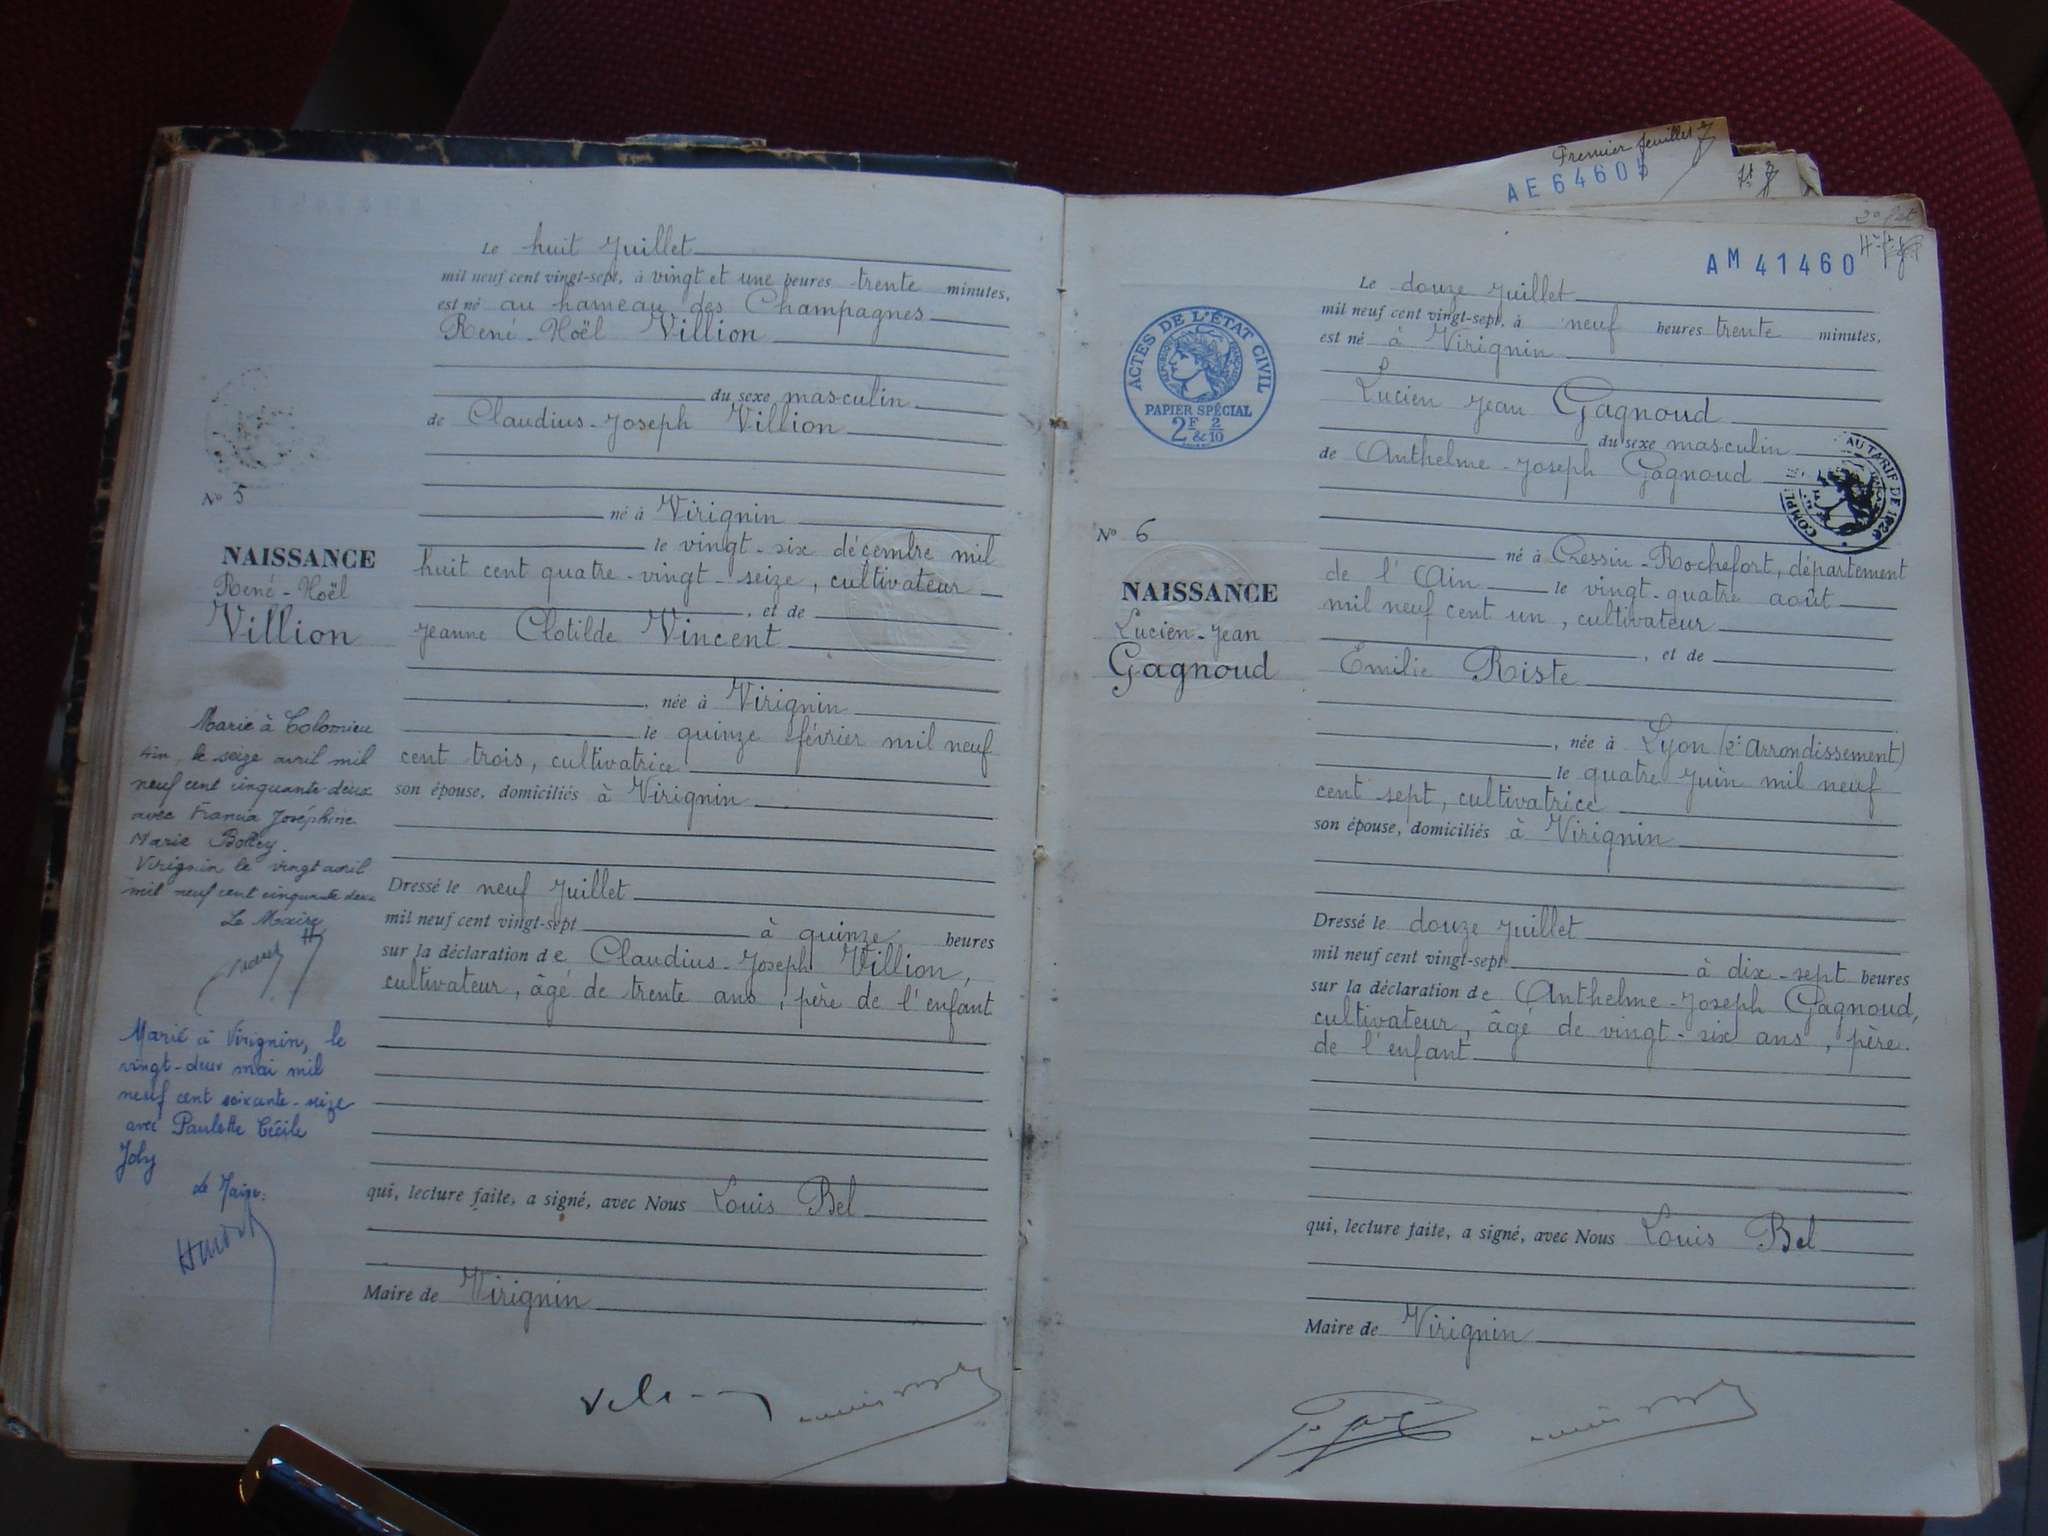 Le huit Juillet
mil neuf cent vingt-sept, à vingt et une heures trente minutes,
est né au hameau des Champagnes
René-Noël Villion
du sexe masculin
de Claudius-Joseph Villion
né à Virignin
le vingt-six décembre mil
huit cent quatre-vingt-seize, cultivateur
, et de
Jeanne Clotilde Vincent
, née à Virignin
le quinze février mil neuf
cent trois, cultivatrice
son épouse, domiciliés à Virignin
Dressé le neuf Juillet
mil neuf cent vingt-sept à quinze heures
sur la déclaration de Claudius-Joseph Villion,
cultivateur, âgé de trente ans, père de l'enfant
qui, lecture faite, a signé, avec Nous Louis Bel
Maire de Virignin
No 5
NAISSANCE
René-Noël
Villion
Marié à Colomieu
Ain, le seize avril mil
neuf cent cinquante deux
avec Francia Joséphine
Marie
Virignin le vingt avril
mil neuf cent cinquante deux
Le Maire
Marié à Virignin, le
vingt-deux mai mil
neuf cent soixante-seize
avec Paulette Cécile
Joly
Le Maire:
Premier feuillet
AE 6460
AM 41460
ACTES DE L'ÉTAT CIVIL
RÉPUBLIQUE FRANÇAISE
PAPIER SPÉCIAL
2F & 2/10
Le douze Juillet
mil neuf cent vingt-sept, à neuf heures trente minutes,
est né à Virignin
Lucien Jean Gagnoud
du sexe masculin
de Anthelme-Joseph Gagnoud
AU TARIF DE 1926
COMPL
né à Cressin-Rochefort, département
de l'Ain le vingt-quatre août
mil neuf cent un, cultivateur
, et de
Emilie Riste
, née à Lyon (2e Arrondissement)
le quatre Juin mil neuf
cent sept, cultivatrice
son épouse, domiciliés à Virignin
Dressé le douze Juillet
mil neuf cent vingt-sept à dix-sept heures
sur la déclaration de Anthelme-Joseph Gagnoud,
cultivateur, âgé de vingt-six ans, père
de l'enfant
qui, lecture faite, a signé, avec Nous Louis Bel
Maire de Virignin
No 6
NAISSANCE
Lucien-Jean
Gagnoud